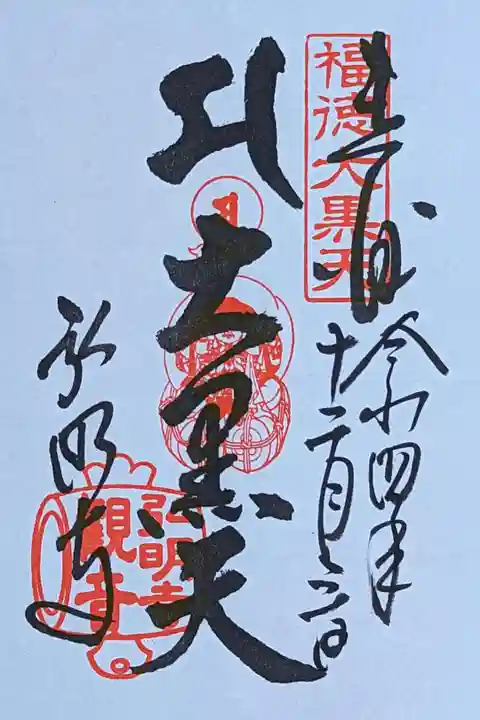 奉拝
福徳大黒天
令和四年
十二月二日
大黒天
弘明寺
弘明寺
観音